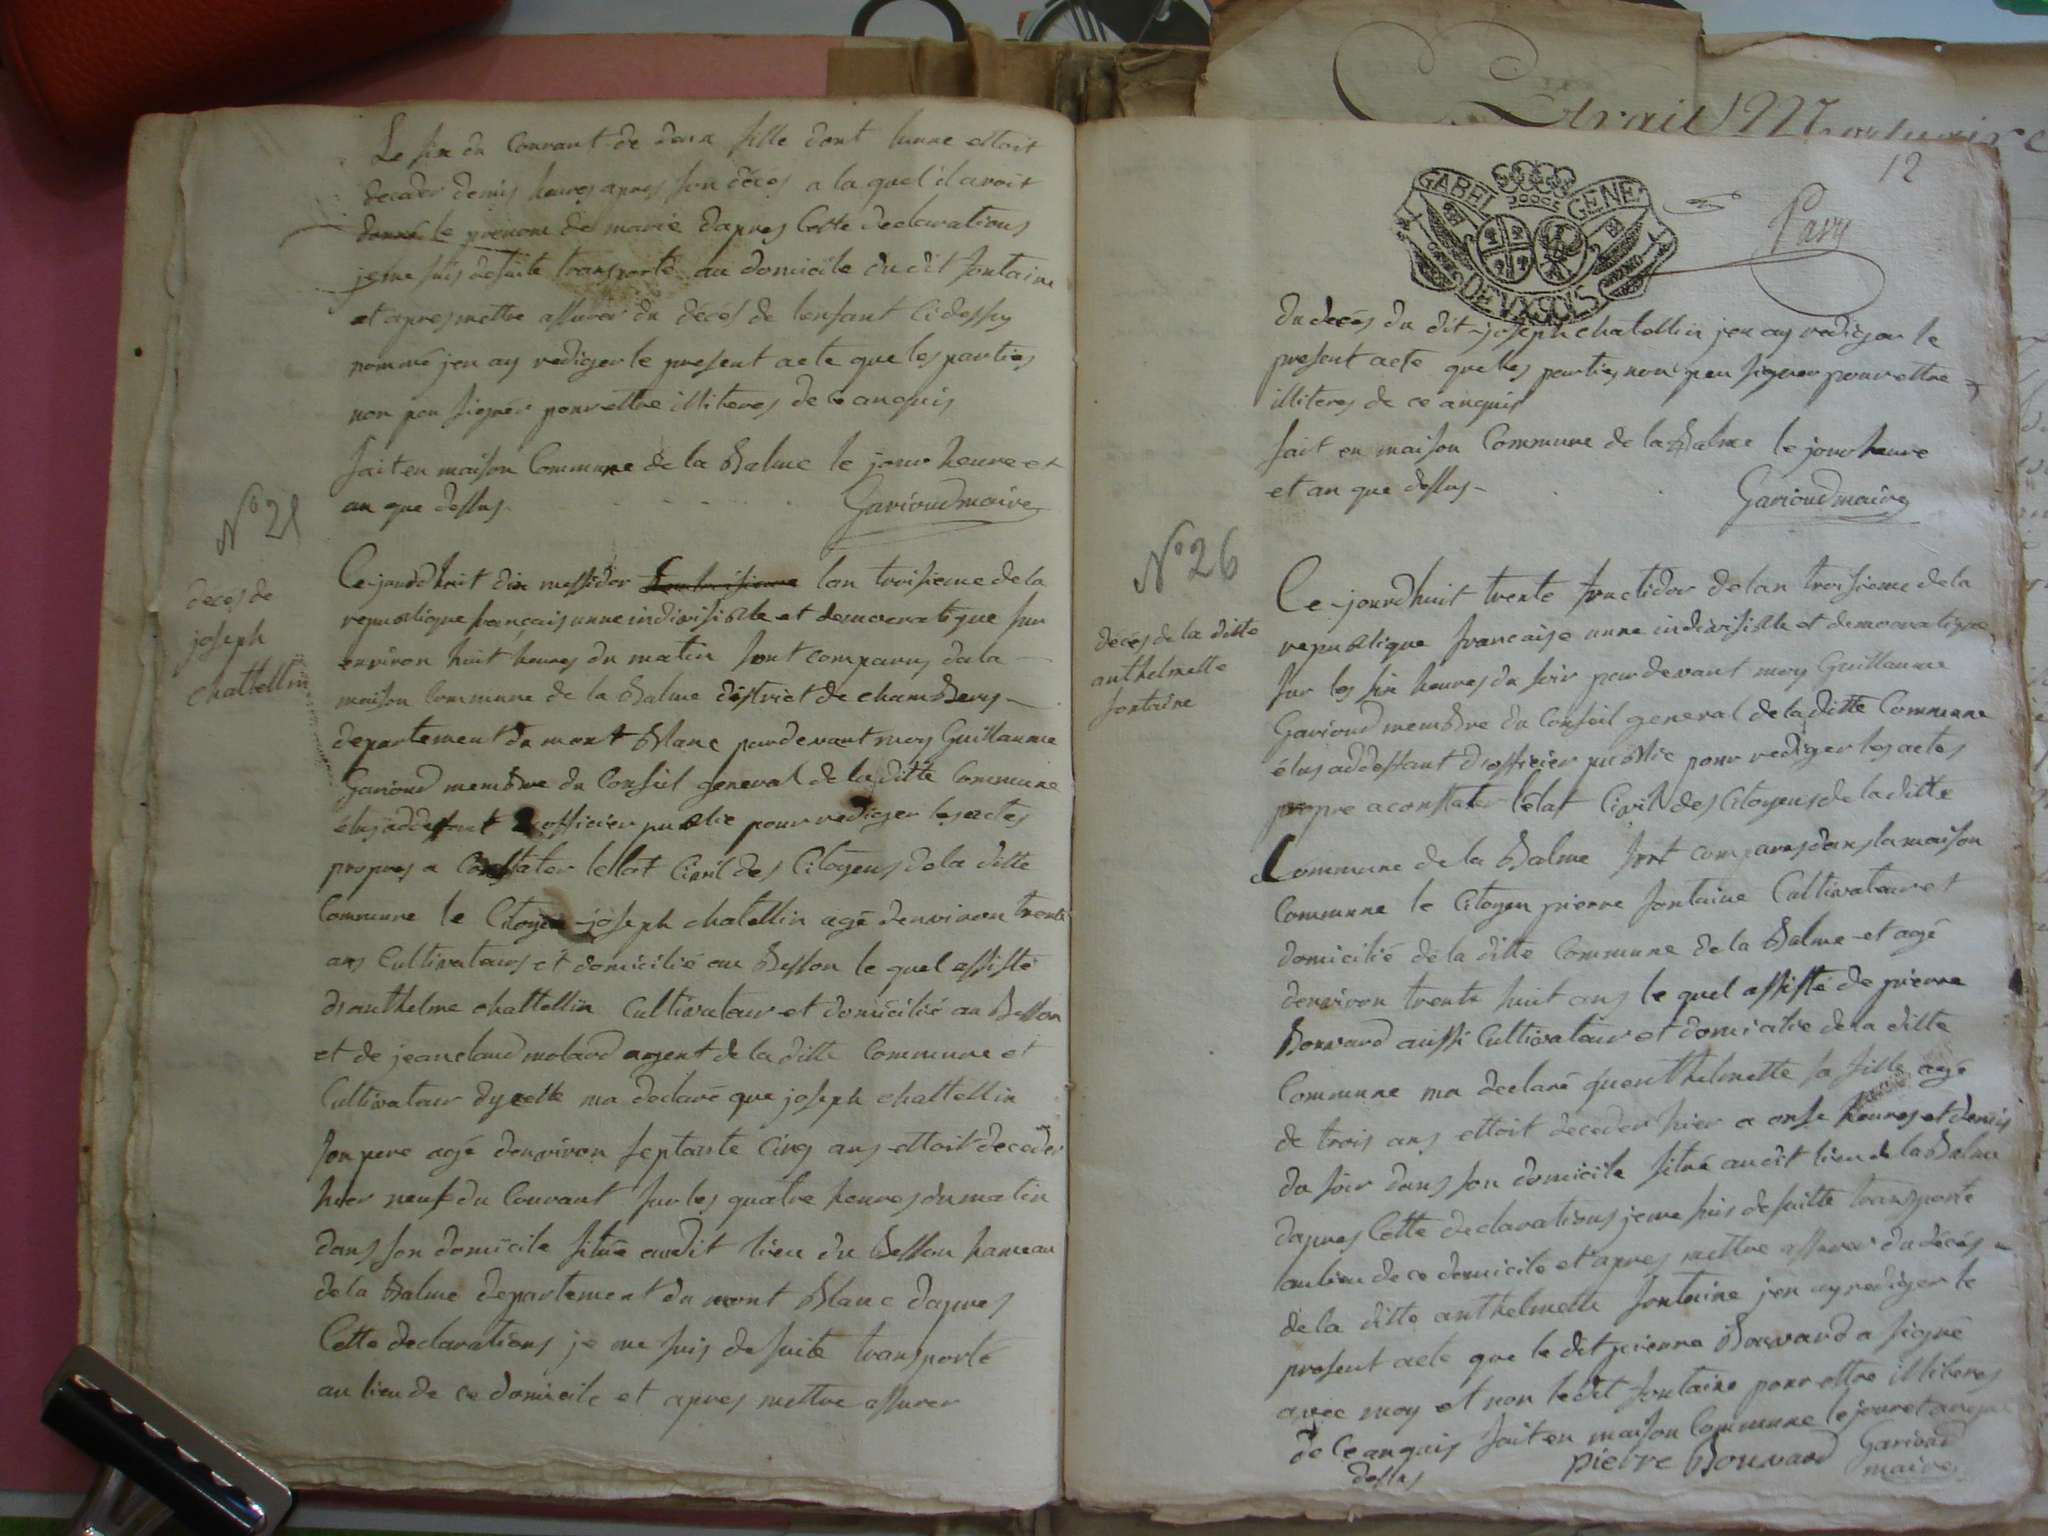 Le six du Courant de deux fille dont lunne ettoit
deceder demis heures apres son déces a la quel il avoit
donné le prenom de marie dapres Cette declarations
je me suis desuite transporté au domicile du dit fontaine
et apres mettre assurer du décés de lenfant Cidessus
nommé jen ay rediger le present acte que les parties
non peu signér pour ettre illiteres de ce anquis
fait en maison Commune de la Balme le jour heure et
an que dessus. Garioud maire
N° 25
deces de
joseph
chattellin
Ce-jourdhuit dix messidor lan troisieme de la
republique français unne indivisible et democratique sur
environ huit heures du matin sont comparus dala
maison Commune de la Balme district de chambery
departement du mont Blanc pardevant moy Guillaume
Garioud membre du Conseil general de la ditte Commune
élus addessant d officier public pour rediger les actes
propres a Constater lettat Civil des Citoyens de la ditte
Commune le Citoyen joseph chatellin agé denviron trente
ans Cultivateurs et domicilié au Besson le quel assisté
danthelme chattellin Cultivateur et domicilié au Besson
et de jean claud molard agent de la ditte Commune et
Cultivateur dycelle ma declaré que joseph chattellin
son pere agé denviron septante Cinq ans ettoit deceder
hier neuf du Courant sur les quatre heures du matin
dans son domicile situé audit lieu du Besson hameau
de la Balme departement du mont Blanc dapres
Cette declarations je me suis de suite transporté
au lieu de ce domicile et apres mettre assurer
12
GABEI GENE
DEUX SUS
Pavy
du decés du dit joseph chatellin jen ay rediger le
present acte que les parties non peu signer pour ettre
illiteres de ce anquis
fait en maison Commune de la Balme le jour heure
et an que dessus Garioud maire
N° 26
décés de la ditte
anthelmette
fontaine
Ce-jourdhuit trente fructidor de lan troisieme de la
republique française unne indivisible et democratique
sur les six heures du soir pardevant moy Guillaume
Garioud membre du Conseil general de la ditte Commune
élus addessant d officier public pour rediger les actes
propre a constater létat Civil des Citoyens de la ditte
Commune de la Balme sont comparus dans la maison
Commune le Citoyen pierre fontaine Cultivateur et
domicilié de la ditte Commune de la Balme et agé
denviron trente huit ans le quel assisté de pierre
Bouvard aussi Cultivateur et domicilié de la ditte
Commune ma declaré quanthelmette sa fille agé
de trois ans ettoit deceder hier a onse heures et demis
du soir dans son domicile situé audit lieu de la Balme
dapres Cette declarations je me suis desuitte transporté
au lieu de ce domicile et apres mettre assurer du décés
de la ditte anthelmette fontaine jen ay rediger le
present acte que le dit pierre Bouvard a signé
avec moy et non ledit fontaine pour ettre illiteres
de Ce anquis fait en maison Commune le jour et an que
dessus pierre Bouvard Garioud
maire